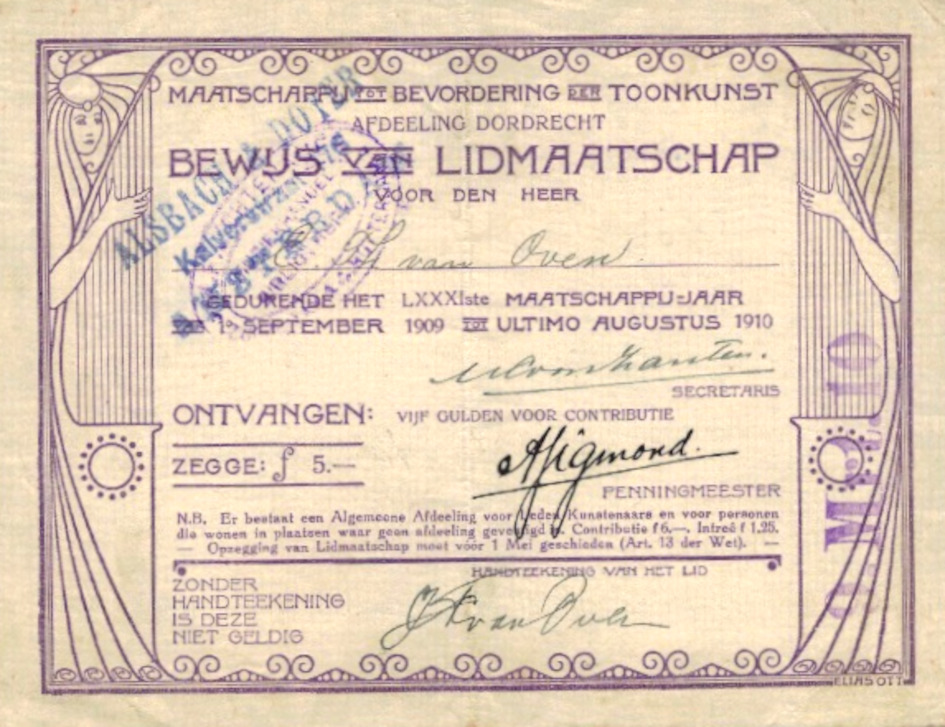 MAATSCHAPPIJ TOT BEVORDERING DER TOONKUNST
AFDEELING DORDRECHT
BEWIJS VAN LIDMAATSCHAP
VOOR DEN HEER
van Oven
ALSBACH & DOYER
Kalverstraat 176
AMSTERDAM
GEDURENDE HET LXXXIste MAATSCHAPPIJ=JAAR
VAN 1n SEPTEMBER 1909 TOT ULTIMO AUGUSTUS 1910
SECRETARIS
ONTVANGEN: VIJF GULDEN VOOR CONTRIBUTIE
ZEGGE: f 5.—
PENNINGMEESTER
N.B. Er bestaat een Algemeene Afdeeling voor Leden Kunstenaars en voor personen
die wonen in plaatsen waar geen afdeeling gevestigd is. Contributie f 6,—. Intreê f 1,25.
— Opzegging van Lidmaatschap moet vóór 1 Mei geschieden (Art. 13 der Wet). —
HANDTEEKENING VAN HET LID
ZONDER
HANDTEEKENING
IS DEZE
NIET GELDIG
van Oven
ELIAS OTT